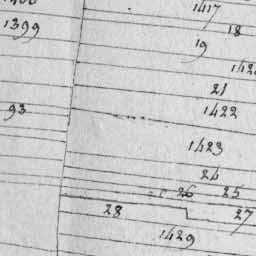 1399
93
1417
18
19
1420
21
1422
1423
24
26 25
28 27
1429